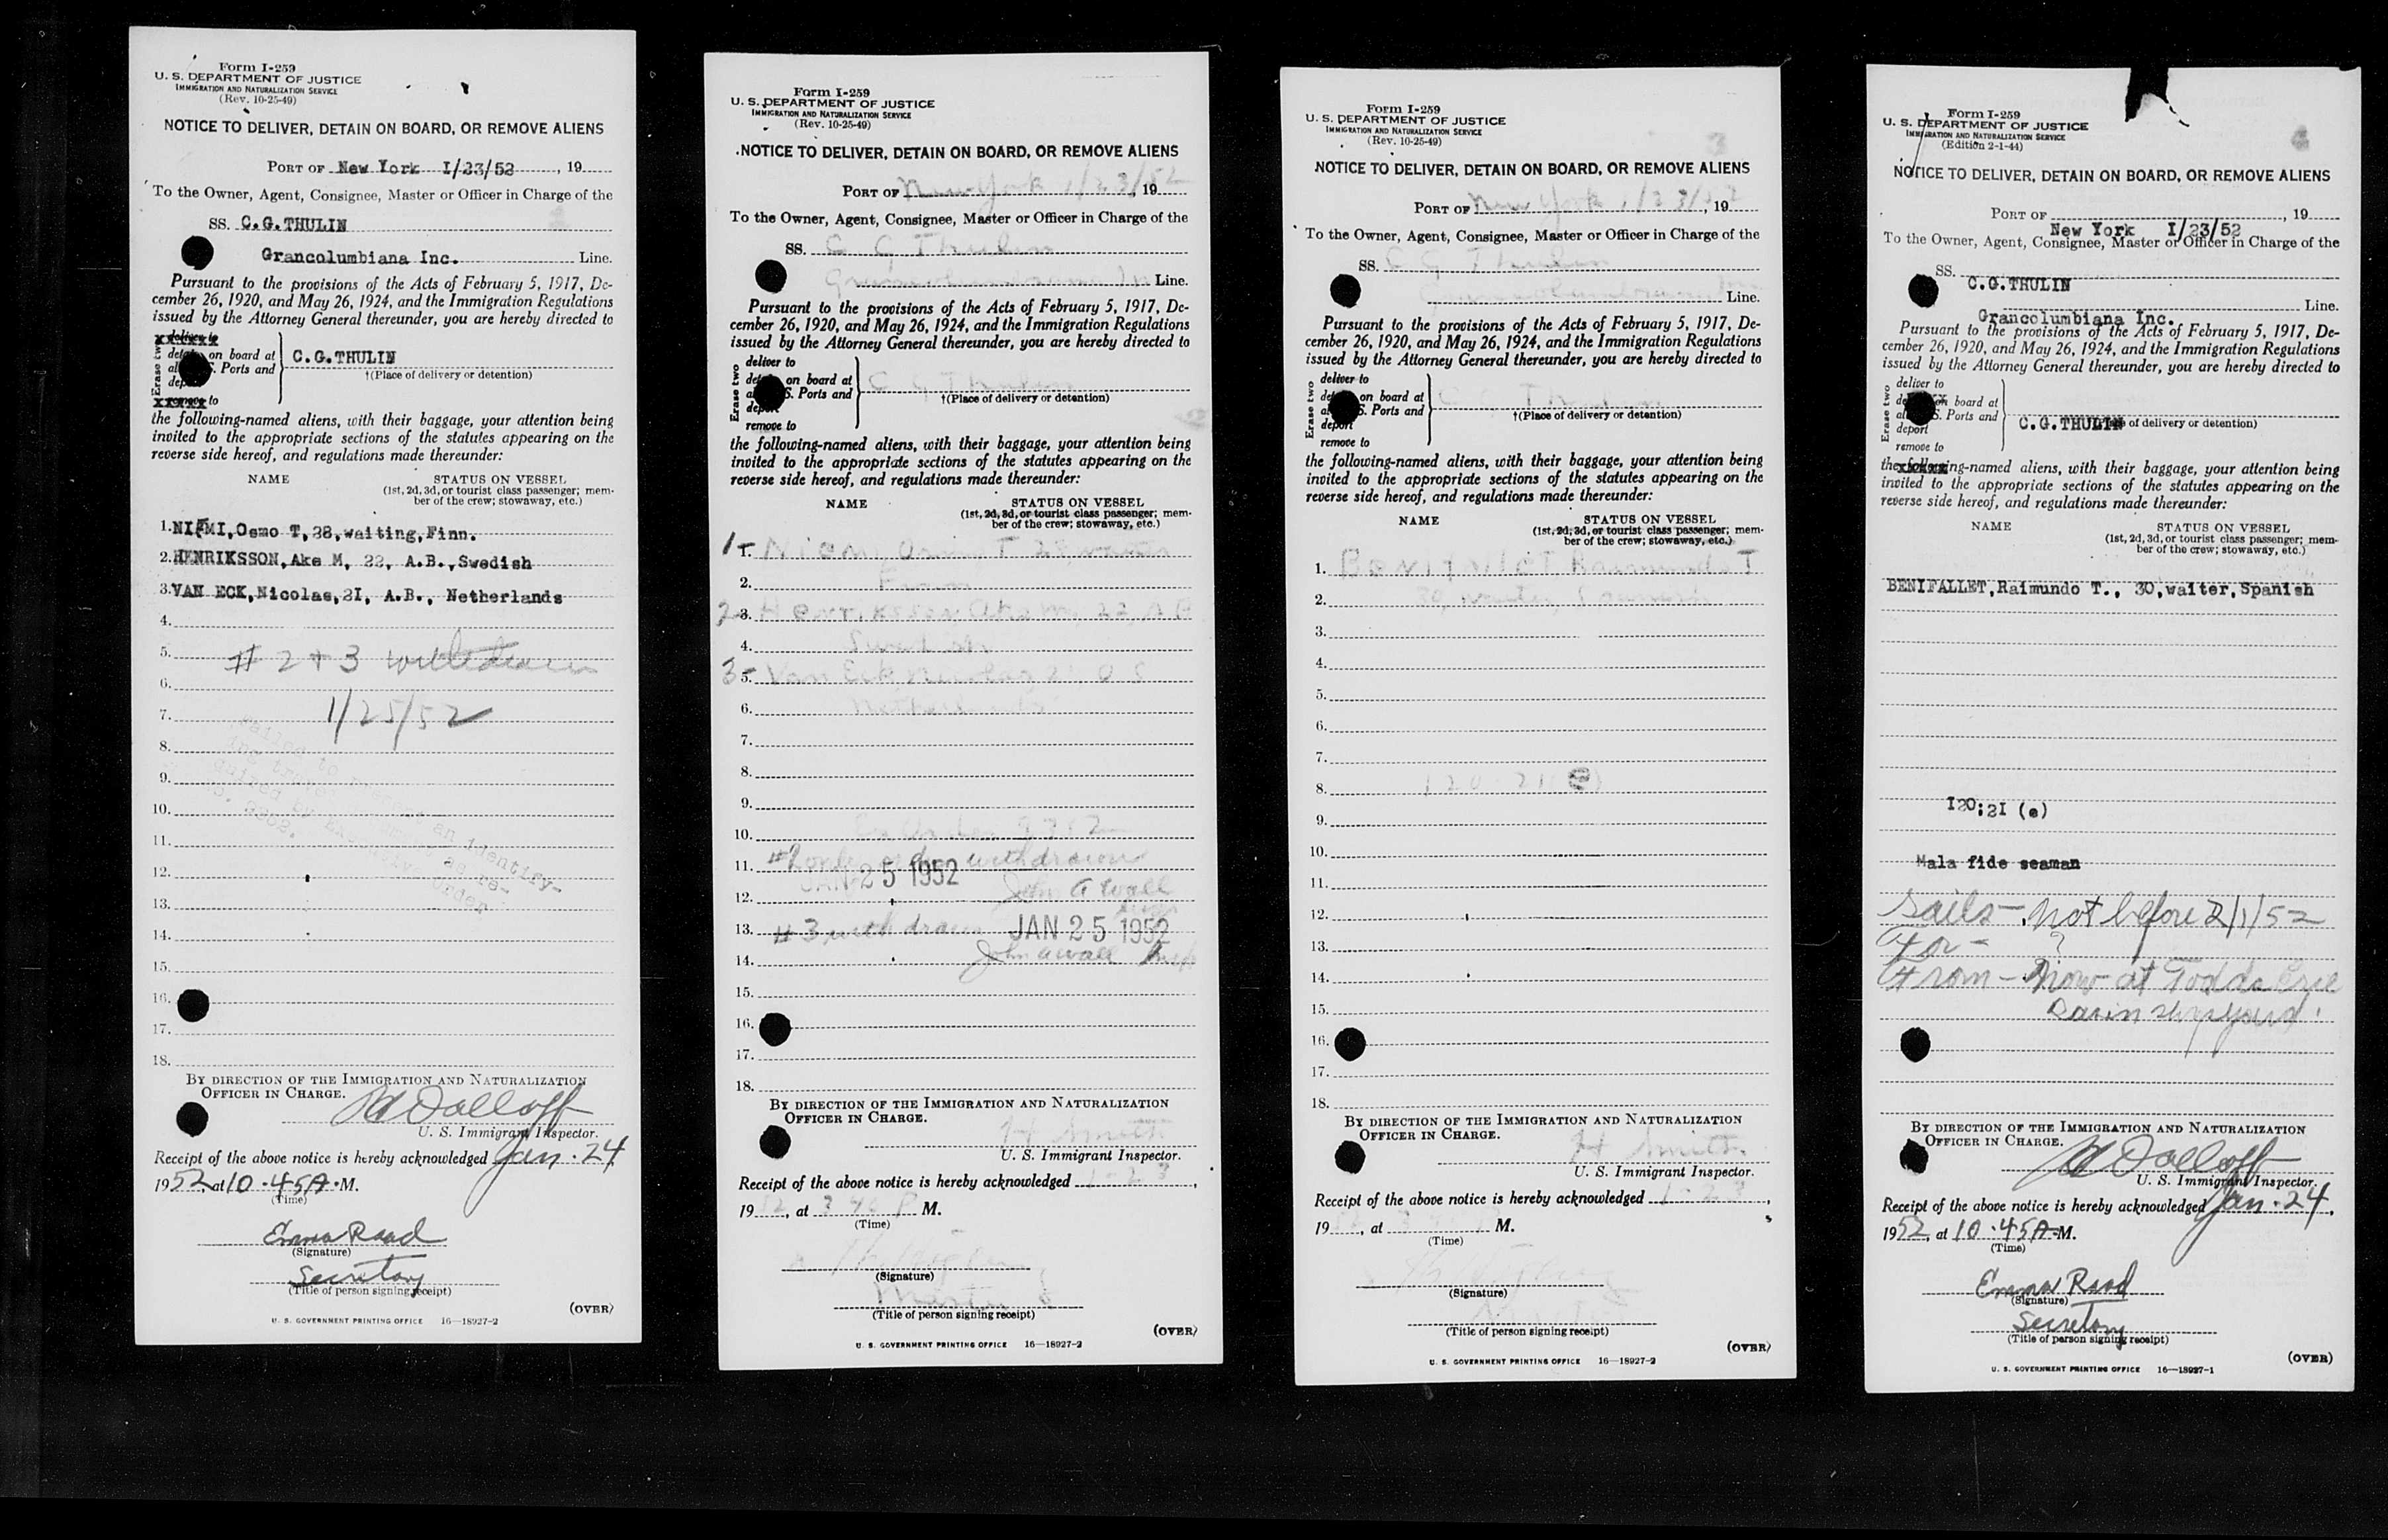 Form I-259
U. S. DEPARTMENT OF JUSTICE
IMMIGRATION AND NATURALIZATION SERVICE
(Rev. 10-25-49)
NOTICE TO DELIVER, DETAIN ON BOARD, OR REMOVE ALIENS
PORT OF New York I/23/52, 19
To the Owner, Agent, Consignee, Master or Officer in Charge of the
SS. C.G.THULIN
Grancolumbiana Inc. Line.
Pursuant to the provisions of the Acts of February 5, 1917, De-
cember 26, 1920, and May 26, 1924, and the Immigration Regulations
issued by the Attorney General thereunder, you are hereby directed to
Erase two
on board at
S. Ports and
C.G.THULIN
†(Place of delivery or detention)
to
the following-named aliens, with their baggage, your attention being
invited to the appropriate sections of the statutes appearing on the
reverse side hereof, and regulations made thereunder:
NAME STATUS ON VESSEL
(1st, 2d, 3d, or tourist class passenger; mem-
ber of the crew; stowaway, etc.)
1. NIEMI, Osmo T, 28, waiting, Finn.
2. HENRIKSSON, Ake M, 22, A.B., Swedish
3. VAN ECK, Nicolas, 2I, A.B., Netherlands
4.
5. # 2 + 3 withdrawn
6.
7. 1/25/52
8.
9.
10.
11.
12.
13.
14.
15.
16.
17.
18.
Failed to present an identify-
ing travel document as re-
quired by Executive Order
No. 9352.
BY DIRECTION OF THE IMMIGRATION AND NATURALIZATION
OFFICER IN CHARGE.
U. S. Immigrant Inspector.
Receipt of the above notice is hereby acknowledged Jan. 24
1952, at 10.45 A.M.
(Time)
Emma Raad
(Signature)
Secretary
(Title of person signing receipt)
(OVER)
U. S. GOVERNMENT PRINTING OFFICE 16—18927-2
Form I-259
U. S. DEPARTMENT OF JUSTICE
IMMIGRATION AND NATURALIZATION SERVICE
(Rev. 10-25-49)
NOTICE TO DELIVER, DETAIN ON BOARD, OR REMOVE ALIENS
PORT OF New York 1/23/52, 19
To the Owner, Agent, Consignee, Master or Officer in Charge of the
SS. C G Thulin
Line.
Pursuant to the provisions of the Acts of February 5, 1917, De-
cember 26, 1920, and May 26, 1924, and the Immigration Regulations
issued by the Attorney General thereunder, you are hereby directed to
Erase two
deliver to
on board at
S. Ports and
deport
remove to
C G Thulin
†(Place of delivery or detention)
the following-named aliens, with their baggage, your attention being
invited to the appropriate sections of the statutes appearing on the
reverse side hereof, and regulations made thereunder:
NAME STATUS ON VESSEL
(1st, 2d, 3d, or tourist class passenger; mem-
ber of the crew; stowaway, etc.)
1. Niemi T 28
2. Finn
3. Henriksson Ake M, 22 A B
4. Swedish
5. Van Eck Nicolas 21
6. Netherlands
7.
8.
9.
10. Ex Order 9352
11. #2 withdrawn
JAN 25 1952
12. John A Wall
13. #3 withdrawn JAN 25 1952
14. John A Wall Insp
15.
16.
17.
18.
BY DIRECTION OF THE IMMIGRATION AND NATURALIZATION
OFFICER IN CHARGE.
H Smith
U. S. Immigrant Inspector.
Receipt of the above notice is hereby acknowledged 1-23,
1952, at 3 40 P M.
(Time)
(Signature)
Master
(Title of person signing receipt)
(OVER)
U. S. GOVERNMENT PRINTING OFFICE 16—18927-2
Form I-259
U. S. DEPARTMENT OF JUSTICE
IMMIGRATION AND NATURALIZATION SERVICE
(Rev. 10-25-49)
3
NOTICE TO DELIVER, DETAIN ON BOARD, OR REMOVE ALIENS
PORT OF New York 1/23/52, 19
To the Owner, Agent, Consignee, Master or Officer in Charge of the
SS. C G Thulin
Line.
Pursuant to the provisions of the Acts of February 5, 1917, De-
cember 26, 1920, and May 26, 1924, and the Immigration Regulations
issued by the Attorney General thereunder, you are hereby directed to
Erase two
deliver to
on board at
S. Ports and
deport
remove to
C G Thulin
†(Place of delivery or detention)
the following-named aliens, with their baggage, your attention being
invited to the appropriate sections of the statutes appearing on the
reverse side hereof, and regulations made thereunder:
NAME STATUS ON VESSEL
(1st, 2d, 3d, or tourist class passenger; mem-
ber of the crew; stowaway, etc.)
1. Raimundo T
2. 30, waiter, Spanish
3.
4.
5.
6.
7.
8. 120 21 (e)
9.
10.
11.
12.
13.
14.
15.
16.
17.
18.
BY DIRECTION OF THE IMMIGRATION AND NATURALIZATION
OFFICER IN CHARGE.
H Smith
U. S. Immigrant Inspector.
Receipt of the above notice is hereby acknowledged 1-23,
19, at M.
(Time)
(Signature)
(Title of person signing receipt)
(OVER)
U. S. GOVERNMENT PRINTING OFFICE 16—18927-2
Form I-259
U. S. DEPARTMENT OF JUSTICE
IMMIGRATION AND NATURALIZATION SERVICE
(Edition 2-1-44)
NOTICE TO DELIVER, DETAIN ON BOARD, OR REMOVE ALIENS
PORT OF , 19
New York I/23/52
To the Owner, Agent, Consignee, Master or Officer in Charge of the
SS.
C.G.THULIN
Line.
Grancolumbiana Inc.
Pursuant to the provisions of the Acts of February 5, 1917, De-
cember 26, 1920, and May 26, 1924, and the Immigration Regulations
issued by the Attorney General thereunder, you are hereby directed to
Erase two
deliver to
on board at
S. Ports and
deport
remove to
C.G.THULIN of delivery or detention)
the following-named aliens, with their baggage, your attention being
invited to the appropriate sections of the statutes appearing on the
reverse side hereof, and regulations made thereunder:
NAME STATUS ON VESSEL
(1st, 2d, 3d, or tourist class passenger; mem-
ber of the crew; stowaway, etc.)
BENIFALLET, Raimundo T., 30, waiter, Spanish
I20:2I (e)
Mala fide seaman
Sails — not before 2/1/52
For — ?
From — Now at Todds Erie
Basin shipyard.
BY DIRECTION OF THE IMMIGRATION AND NATURALIZATION
OFFICER IN CHARGE.
U. S. Immigrant Inspector.
Receipt of the above notice is hereby acknowledged Jan. 24,
1952, at 10.45 A.M.
(Time)
Emma Raad
(Signature)
Secretary
(Title of person signing receipt)
(OVER)
U. S. GOVERNMENT PRINTING OFFICE 16—18927-1